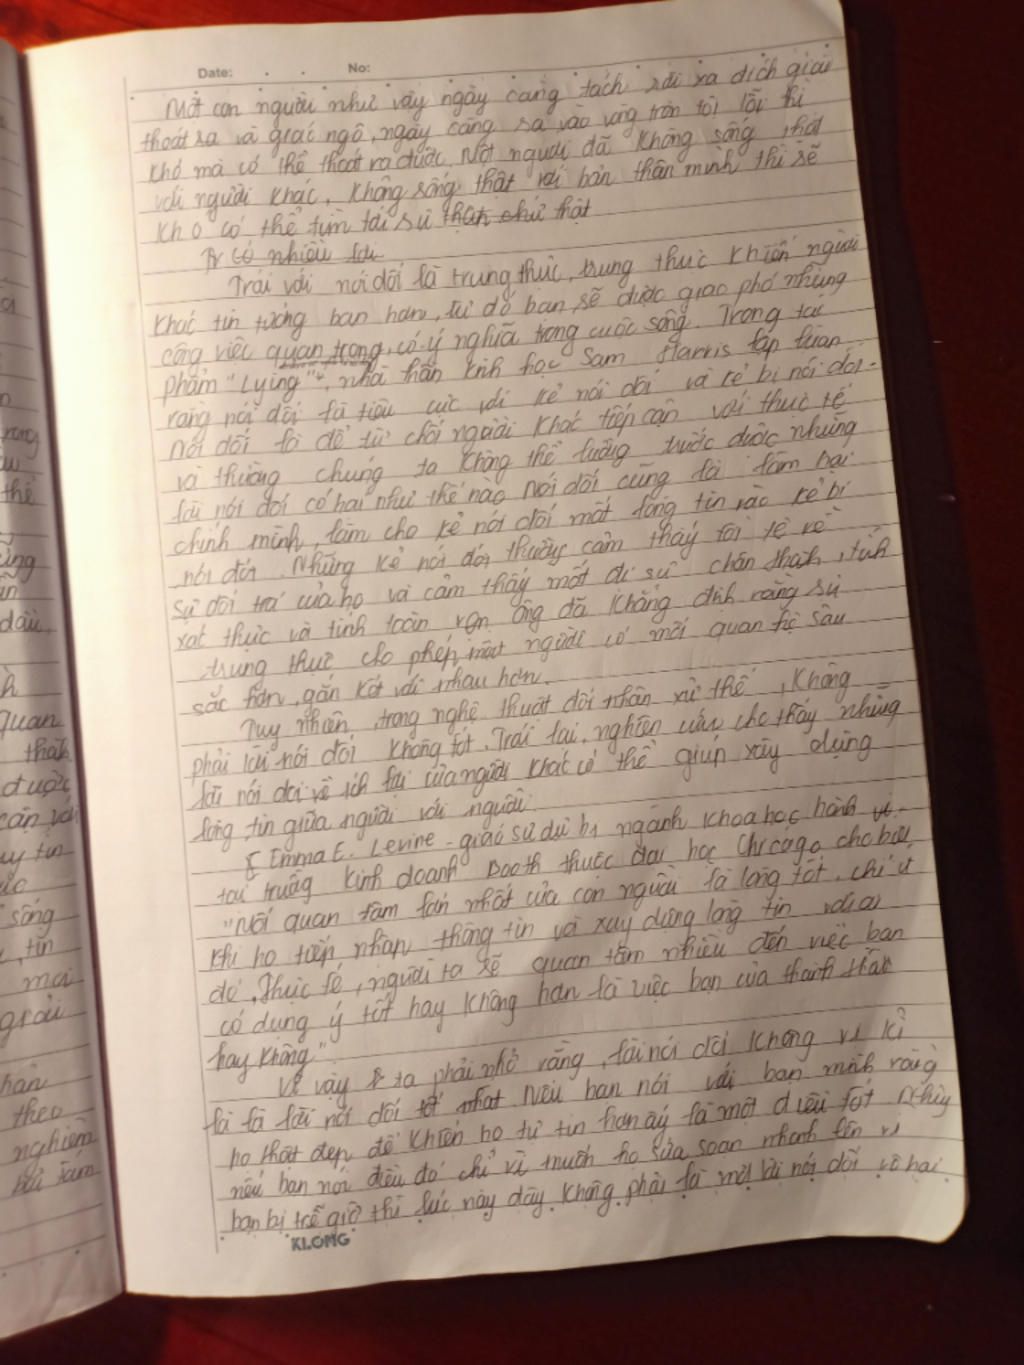 Date: No:
Một con người như vậy ngày càng tách rời ra đích giải
thoát ra và giác ngộ, ngày càng sa vào vòng tròn tội lỗi thì
khó mà có thể thoát ra được. Một người đã không sống thật
với người khác, không sống thật với bản thân mình thì sẽ
khó có thể tìm tới sự thật chứ thật
Tr có nhiều lợi
Trái với nói dối là trung thực, trung thực khiến người
khác tin tưởng bạn hơn, từ đó bạn sẽ được giao phó những
công việc quan trọng, có ý nghĩa trong cuộc sống. Trong tác
phẩm "Lying", nhà thần kinh học Sam Harris lập luận
rằng nói dối là tiêu cực với kẻ nói dối và kẻ bị nói dối.
Nói dối là để từ chối người khác tiếp cận với thực tế
và thường chúng ta không thể lường trước được những
lời nói dối có hại như thế nào. Nói dối cũng là làm hại
chính mình, làm cho kẻ nói dối mất lòng tin vào kẻ bị
nói dối. Những kẻ nói dối thường cảm thấy tồi tệ về
sự dối trá của họ và cảm thấy mất đi sự chân thành, tính
xác thực và tính toàn vẹn. Ông đã khẳng định rằng sự
trung thực cho phép một người có mối quan hệ sâu
sắc hơn, gắn kết với nhau hơn.
Tuy nhiên, trong nghệ thuật đối nhân xử thế, không
phải lời nói dối không tốt. Trái lại, nghiên cứu cho thấy những
lời nói dối về ích lợi của người khác có thể giúp xây dựng
lòng tin giữa người với người.
Emma E. Levine - giáo sư dự bị ngành khoa học hành vi
tại trường kinh doanh Booth thuộc đại học Chicago cho biết
"Mối quan tâm lớn nhất của con người là lòng tốt, chỉ ư
khi họ tiếp nhận thông tin và xây dựng lòng tin với ai
đó. Thực tế, người ta sẽ quan tâm nhiều đến việc bạn
có dụng ý tốt hay không hơn là việc bạn của thành thật
hay không".
Vì vậy ta phải nhớ rằng, lời nói dối không vị kỉ
là là lời nói dối tốt nhất. Nếu bạn nói với bạn mình rằng
họ thật đẹp để khiến họ tự tin hơn ấy là một điều tốt. Nhưng
nếu bạn nói điều đó chỉ vì muốn họ sửa soạn nhanh lên vì
bạn bị trễ giờ thì lúc này đây không phải là một lời nói dối vô hại
KLONG